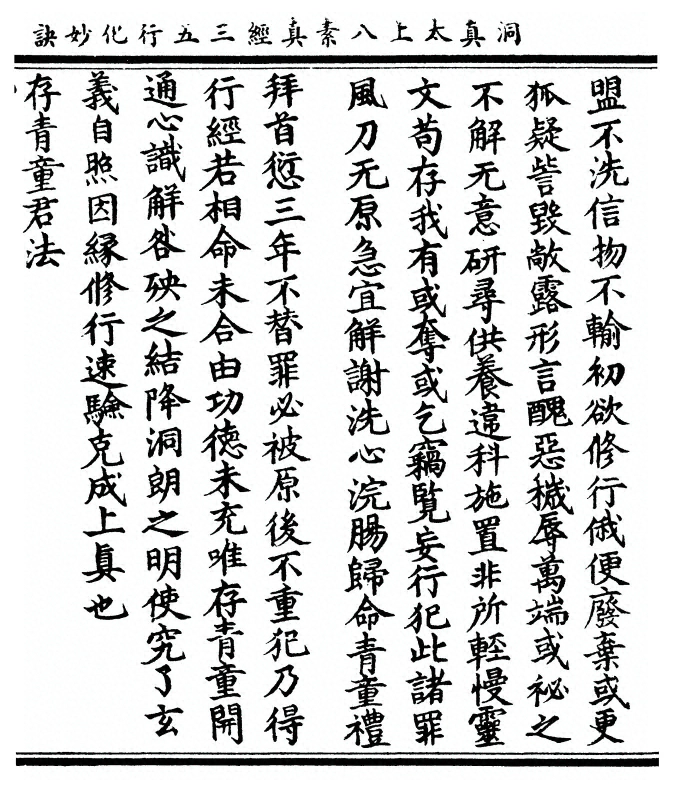 洞真太上八素真經三五行化妙訣
盟不洗信物不輸初欲修行俄便廢棄或更
狐疑訾毀敵露形言醜惡穢辱萬端或祕之
不解无意研尋供養違科施置非所輕慢靈
文苟存我有或奪或乞竊覽妄行犯此諸罪
風刀无原急宜解謝洗心浣腸歸命青童禮
拜首愆三年不替罪必被原後不重犯乃得
行經若相命未合由功德未充唯存青童開
通心識解咎殃之結降洞朗之明使究了玄
義自照因緣修行速驗克成上真也
存青童君法